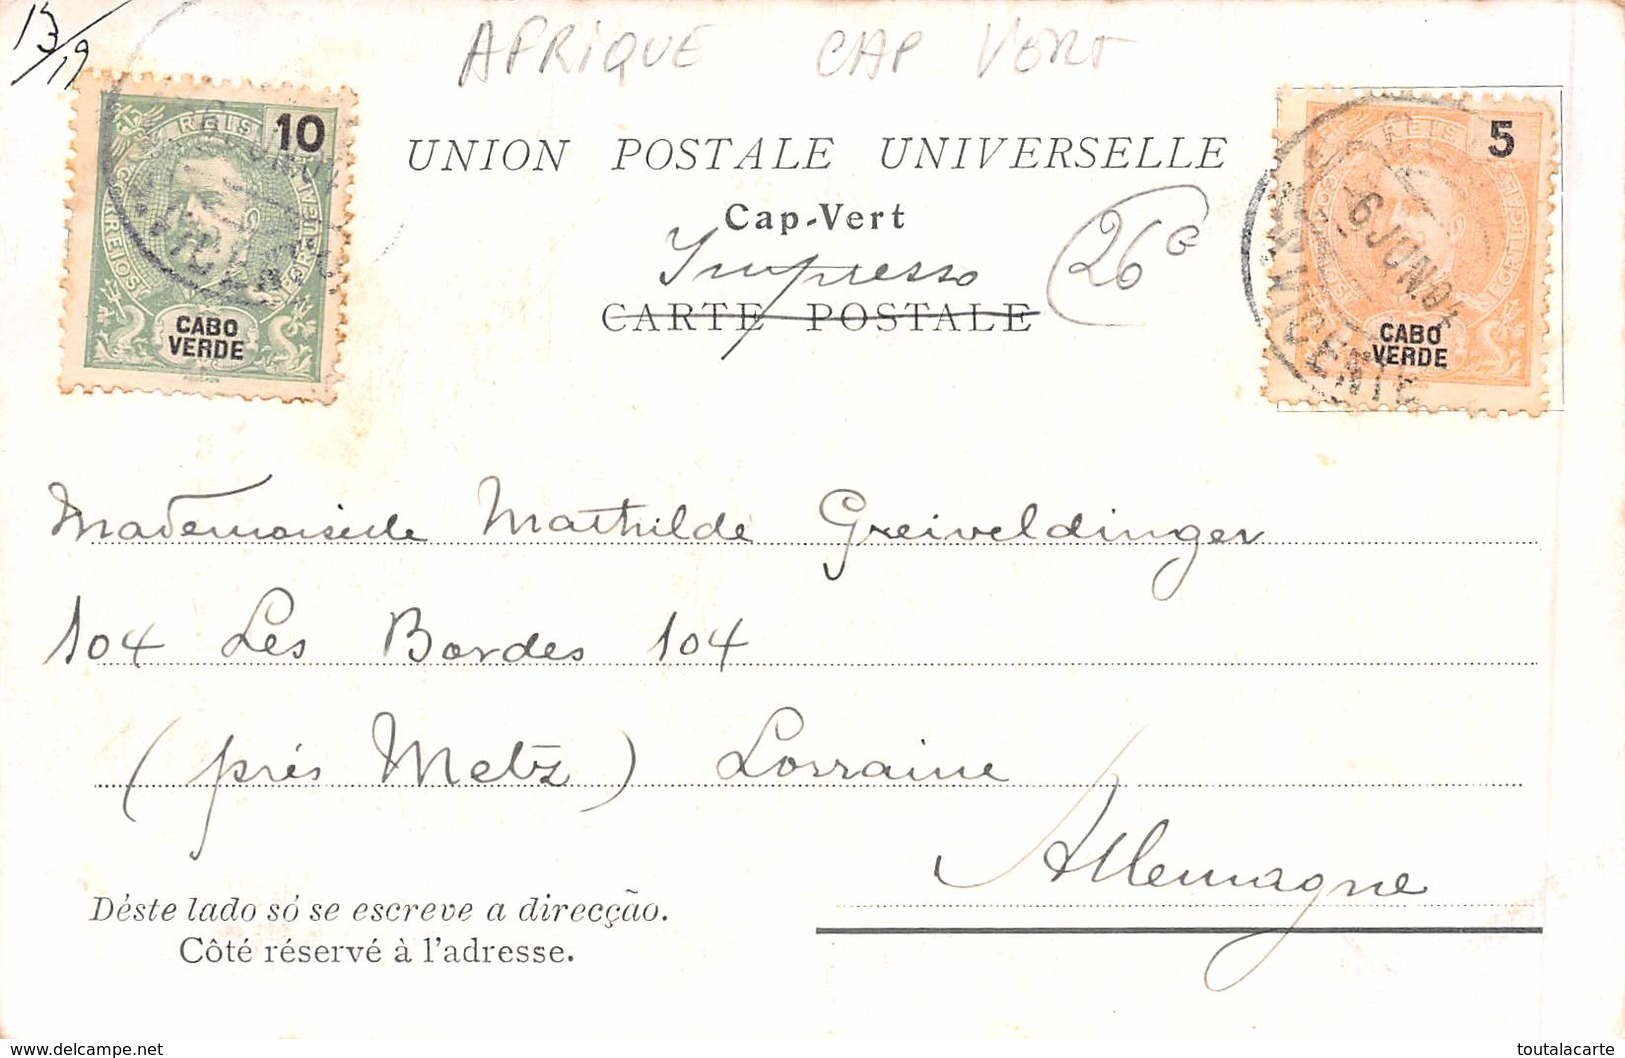 13/19
AFRIQUE CAP VERT
UNION POSTALE UNIVERSELLE
Cap-Vert
Impresso
26 G
CARTE POSTALE
REIS 10
CORREIOS
PORTUGAL
CABO
VERDE
REIS 5
PORTUGAL
CABO
VERDE
6 JUN 01
S. VICENTE
Mademoiselle Mathilde Greiveldinger
104 Les Bordes 104
(près Metz) Lorraine
Allemagne
Déste lado só se escreve a direcção.
Côté réservé à l'adresse.
www.delcampe.net
toutalacarte